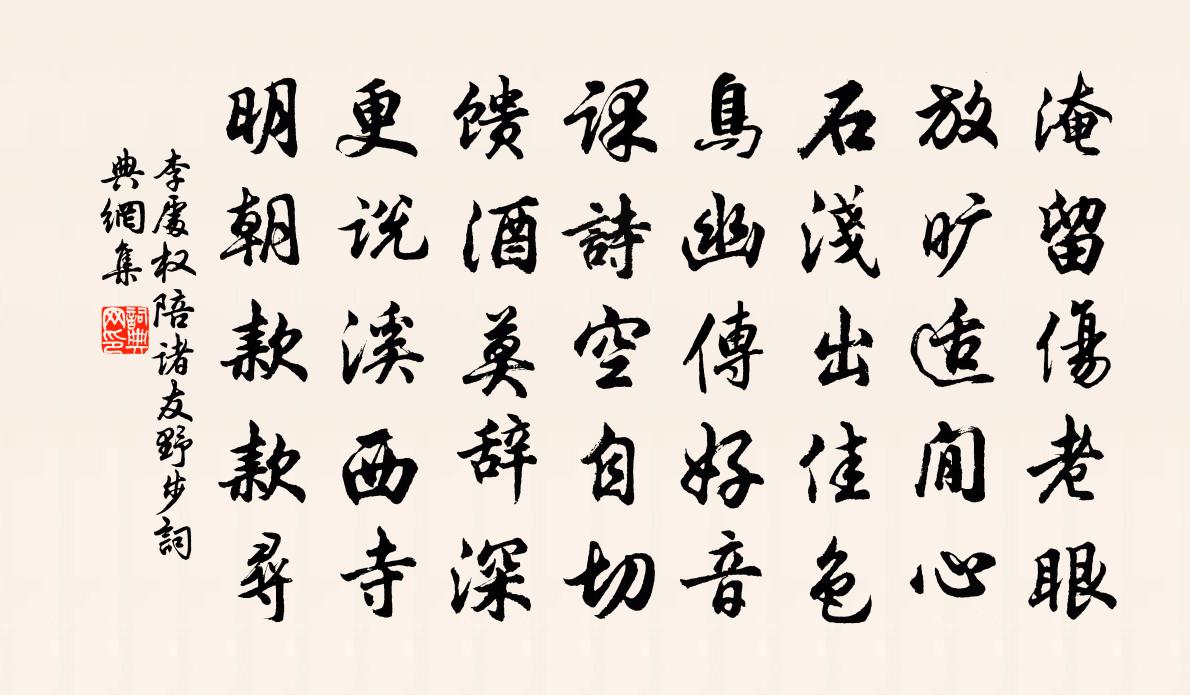 淹留傷老眼
放旷适閒心
石淺出佳色
鳥幽傳好音
課詩空自切
馈酒莫辞深
更说溪西寺
明朝款款尋
李處权陪诸友野步詞
典網集
詞典网印